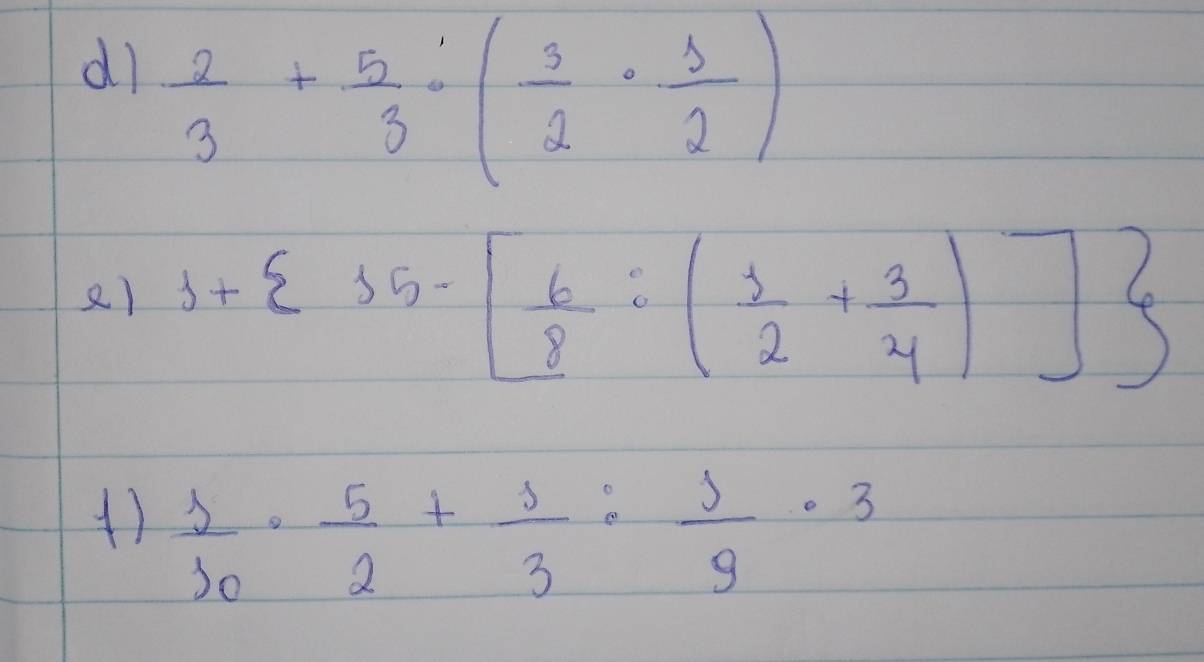 d) 2/3 + 5/3 · (3/2 · 1/2)
e) 1 + { 15 - [ 6/8 : (1/2 + 3/4) ] }
f) 1/10 · 5/2 + 1/3 : 1/9 · 3